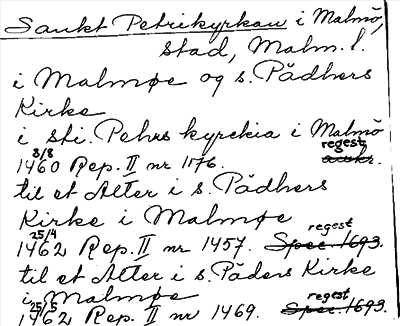 Sankt Petrikyrkan i Malmö,
stad, Malm. l.
i Malmøe og s. Pädhers
Kirke
i sti. Pehrs kyrckia i Malmö
8/8 regest
1460 Rep. II nr 1176.
til et Alter i s. Pädhers
Kirke i Malmøe
25/4 regest
1462 Rep. II nr 1457. Spec. 1693.
til et Alter i s. Päders Kirke
i Malmøe
25/5 regest
1462 Rep. II nr 1469. Spec. 1693.